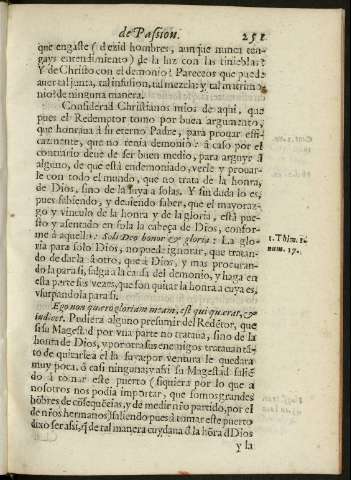 de Passion. 251
que engaste (dezid hombres, aunque nunca ten-
gays entendimiento) de la luz con las tinieblas?
Y de Christo con el demonio? Pareceos que puede
auer tal junta, tal infusion, tal mezcla: y tal matrimo
nio? de ninguna manera.
Considerad Christianos mios de aqui, que
pues el Redemptor tomo por buen argumento,
que honraua à su eterno Padre, para prouar effi-
cazmente, que no tenia demonio: à caso por el
contrario deue de ser buen medio, para arguyr à
alguno, de que està endemoniado, verle y prouar-
le con todo el mundo, que no trata de la honra
de Dios, sino de la suya a solas. Y sin duda lo es,
pues sabiendo, y deuiendo saber, que el mayoraz-
go y vinculo de la honra y de la gloria, està pue-
sto y assentado en sola la cabeça de Dios, confor-
me à aquello: Soli Deo honor & gloria: La glo-
ria para solo Dios, no puede ignorar, que tratan-
do de darla à otro, que à Dios, y mas procuran-
do la para si, salga a la causa del demonio, y haga en
esta parte sus vezes, que son quitar la honra a cuya es,
vsurpandola para si.
1. Thim. 1.
num. 17.
Ego non quero gloriam meam, est qui quærat, &
iudicet. Pudiera alguno presumir del Redẽtor, que
si su Magestad por vna parte no trataua, sino de la
honra de Dios, y por otra sus enemigos tratauan tã-
to de quitarle a el la suya: por ventura le quedara
muy poca, à casi ninguna: y assi su Magestad saliẽ
do à tomar este puerto (siquiera por lo que a
nosotros nos podia importar, que somos grandes
hõbres de cõsequẽcias, y de medir nr̃o partido, por el
de nr̃os hermanos) saliendo pues à tomar este puerto
dixo ser assi, q̃ de tal manera cuydaua d̃ la hõra d̃ Dios
y la